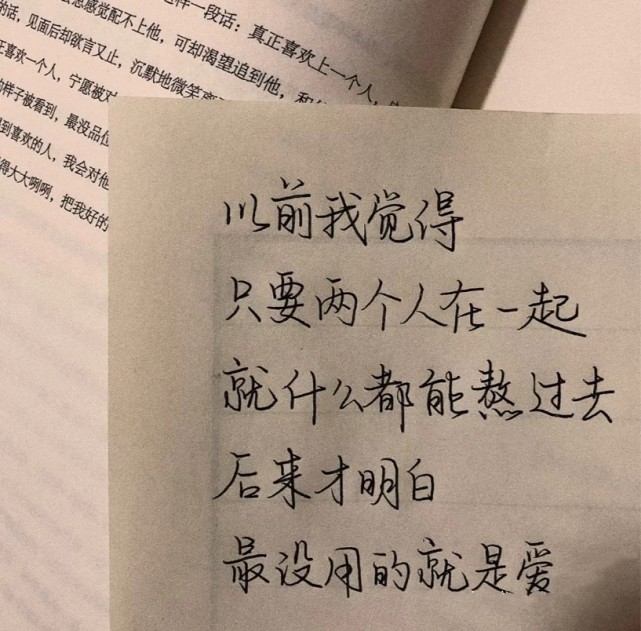 样一段话：真正喜欢上一个人，
感觉配不上他，可却渴望追到他，和
的话，见面后却欲言又止，沉默地微笑
正喜欢一个人，宁愿被
样子被看到，最没品位
到喜欢的人，我会对他
得大大咧咧，把我好的
以前我觉得
只要两个人在一起
就什么都能熬过去
后来才明白
最没用的就是爱